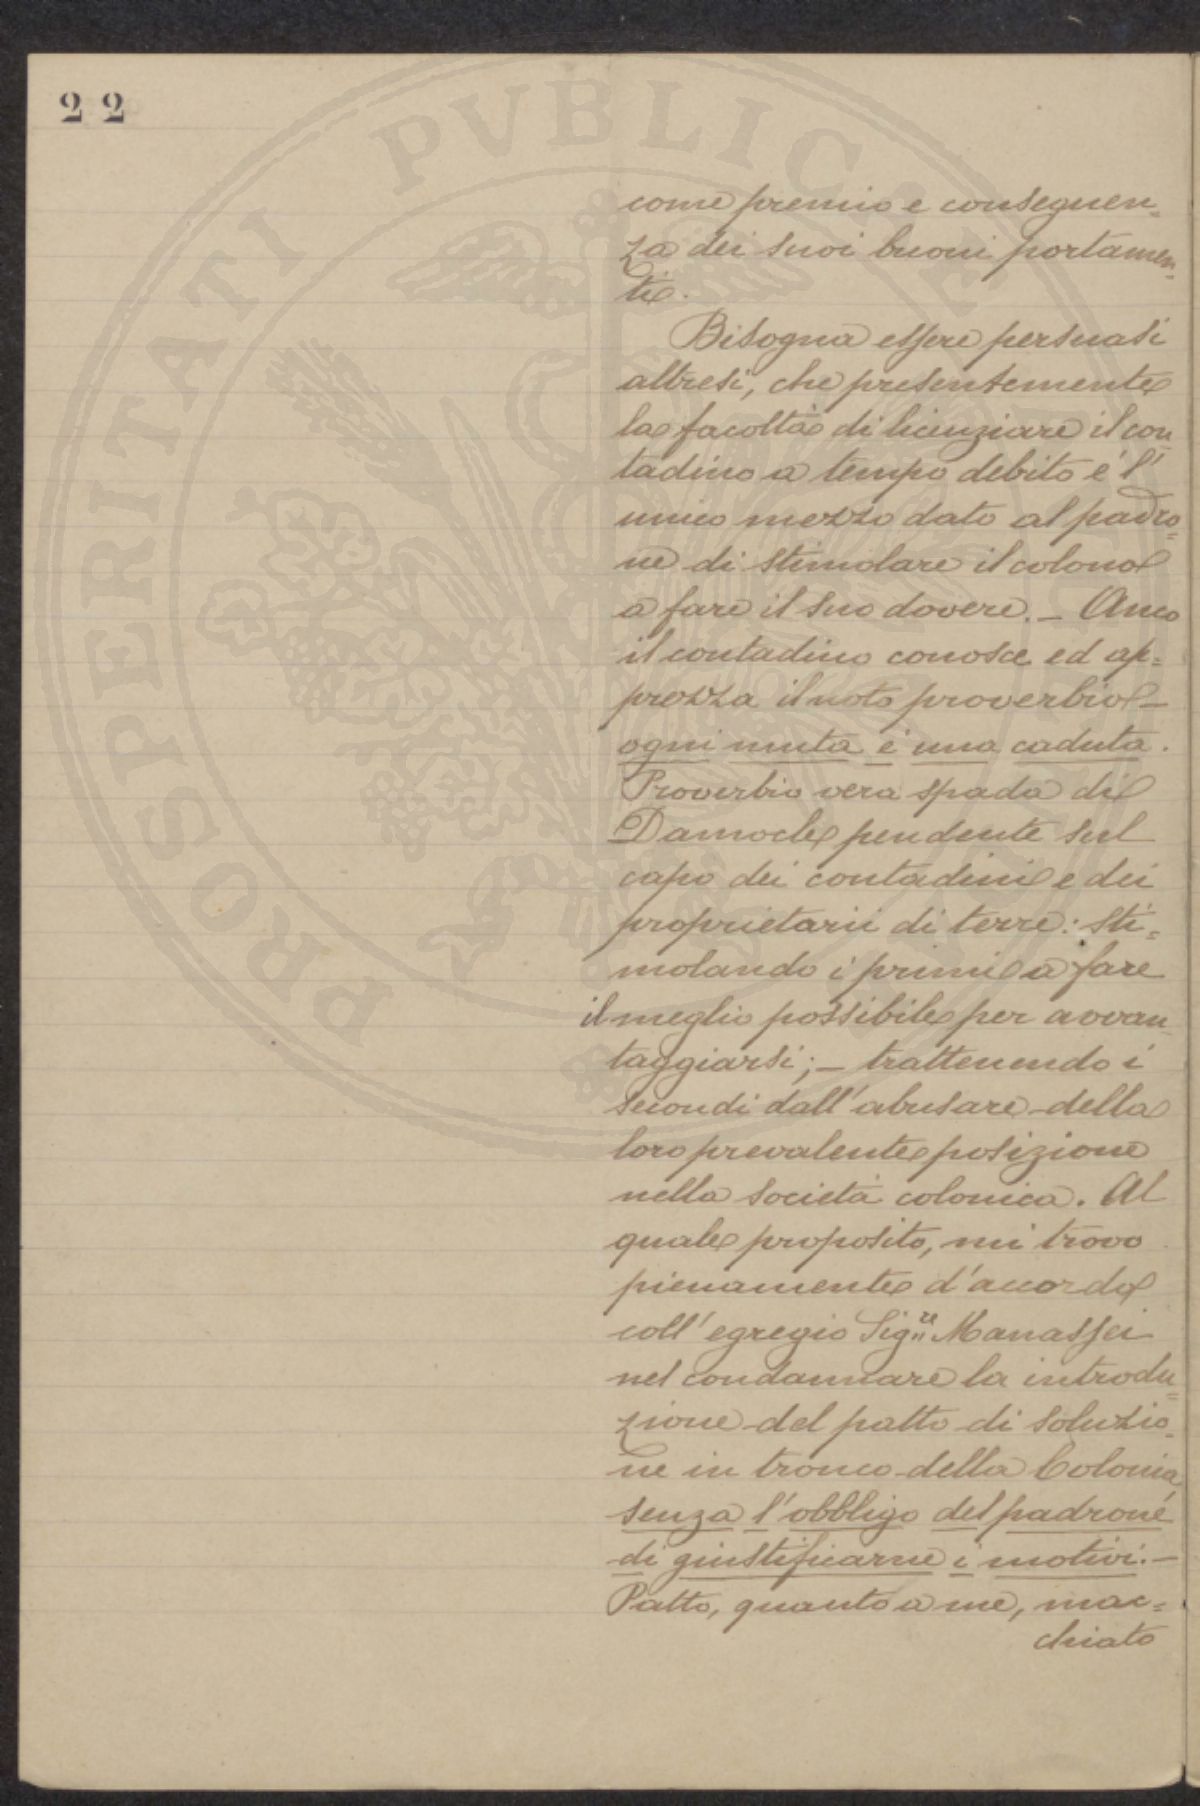 22
PROSPERITATI PVBLICAE
come premio e conseguen=
za dei suoi buoni portamen=
ti.
Bisogna essere persuasi
altresi, che presentemente
la facoltà di licenziare il con=
tadino a tempo debito é l'
unico mezzo dato al padro=
ne di stimolare il colono
a fare il suo dovere. _ Anco
il contadino conosce ed ap=
prezza il noto proverbio _
ogni muta é una caduta.
Proverbio vera spada di
Damocle pendente sul
capo dei contadini e dei
proprietarii di terre: sti=
molando i primi a fare
il meglio possibile per avvan=
taggiarsi; _ trattenendo i
secondi dall'abusare della
loro prevalente posizione
nella società colonica. Al
quale proposito, mi trovo
pienamente d'accordo
coll'egregio Sig.re Manassei
nel condannare la introdu=
zione del patto di soluzio=
ne in tronco della Colonia
senza l'obbligo del padrone
di giustificarne i motivi. _
Patto, quanto a me, mac=
chiato